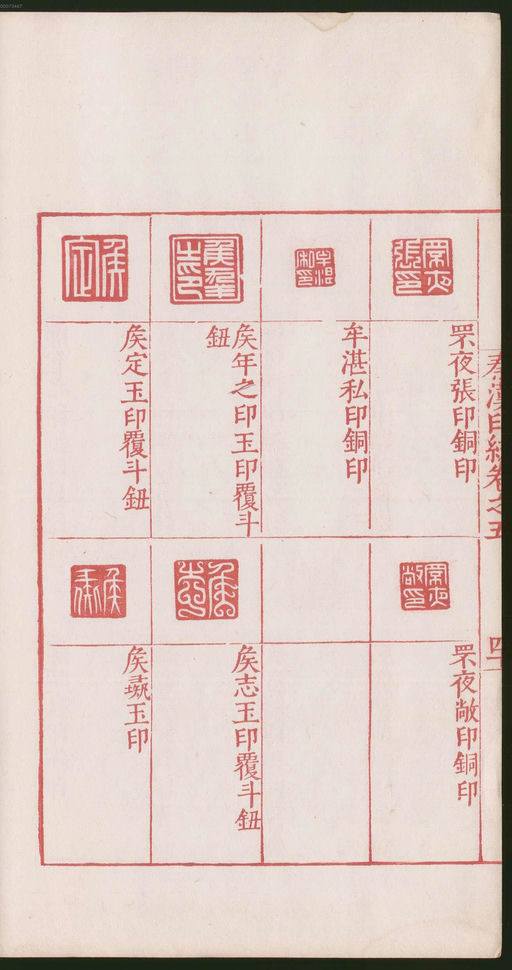 00073467
秦漢印統卷之五
四十
罘夜張印銅印
罘夜敞印銅印
牟湛私印銅印
矦年之印玉印覆斗
鈕
矦志玉印覆斗鈕
矦定玉印覆斗鈕
矦玉印